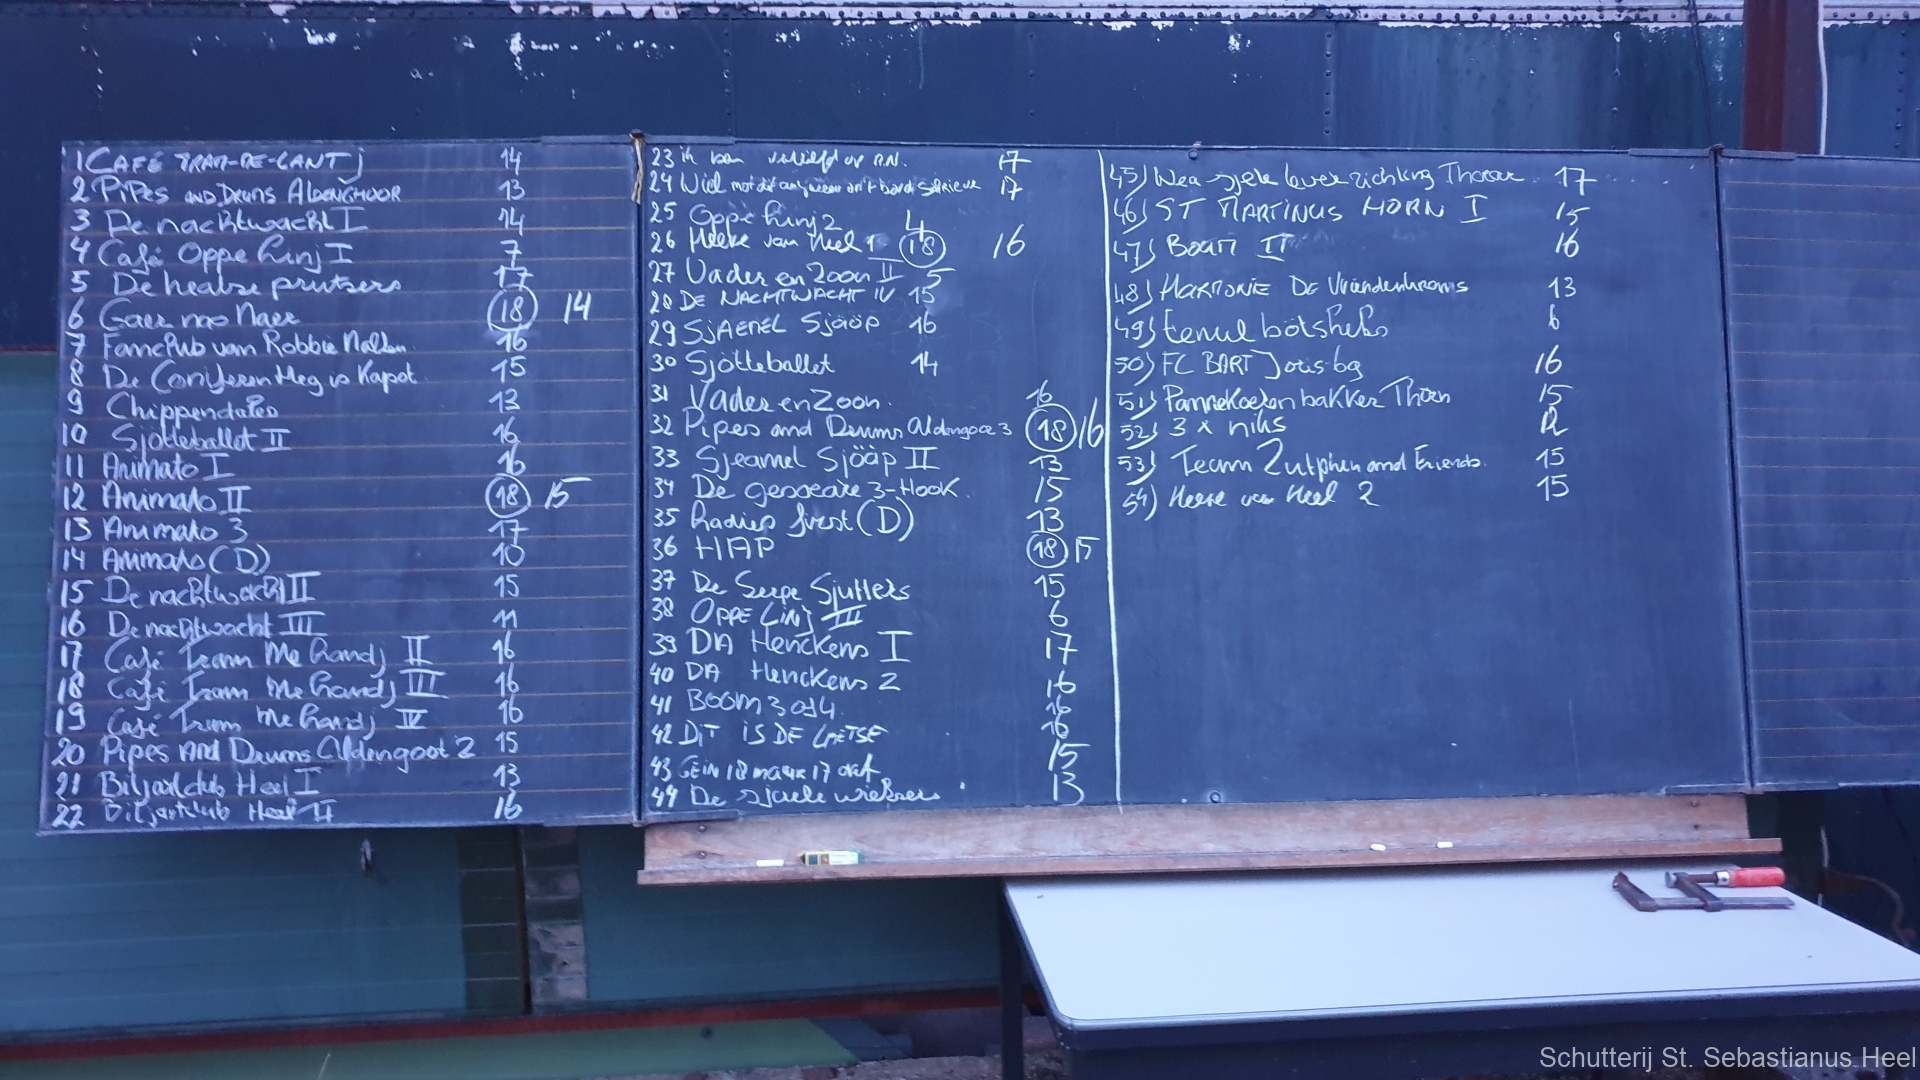 1 CAFÉ TRAM-DE-LANTJ 14
2 PIPES AND DRUMS ALDENGHOOR 13
3 De nachtwacht I 14
4 Café Oppe Linj I 7
5 De healse prutsers 17
6 Gaer nao Naer 18 14
7 FanClub van Robbie Nollen 16
8 De Coniferen Heg is Kapot 15
9 Chippendales 13
10 Sjötteballet II 16
11 Animato I 16
12 Animato II 18 15
13 Animato 3 17
14 Animato (D) 10
15 De nachtwacht II 15
16 De nachtwacht III 11
17 Café Tram Me Landj II 16
18 Café Tram Me Landj III 16
19 Café Tram Me Landj IV 16
20 Pipes And Drums Aldengoor 2 15
21 Biljartclub Heel I 13
22 Biljartclub Heel II 16
23 ik ben verliefd op R.N. 17
24 Wiel 17
25 Oppe Linj 2 4
26 Heere van Heel 1 18 16
27 Vader en Zoon II 5
28 DE NACHTWACHT IV 15
29 SJAEMEL SJÖÖP 16
30 Sjötteballet 14
31 Vader en Zoon. 16
32 Pipes and Drums Aldengoor 3 18 16
33 Sjeamel Sjööp II 13
34 De 3-Hook. 15
35 Ladies first (D) 13
36 HAP 18 15
37 De Sjutters 15
38 OPPE LINJ III 6
39 DA Henckens I 17
40 DA Henckens 2 16
41 BOOM 3 of 4. 16
42 DIT IS DE LAETSE 16
43 GEIN 18 maar 17 15
44 De 13
45) Thoear 17
46) ST MARTINUS HORN I 15
47) BOOM II 16
48) HARMONIE DE Vriendenkrans 13
49) 6
50) FC BART Joris bg 16
51) Pannekoeken bakker Thorn 15
52) 3 x niks 12
53) Team Zutphen and Friends. 15
54) Heere van Heel 2 15
Schutterij St. Sebastianus Heel